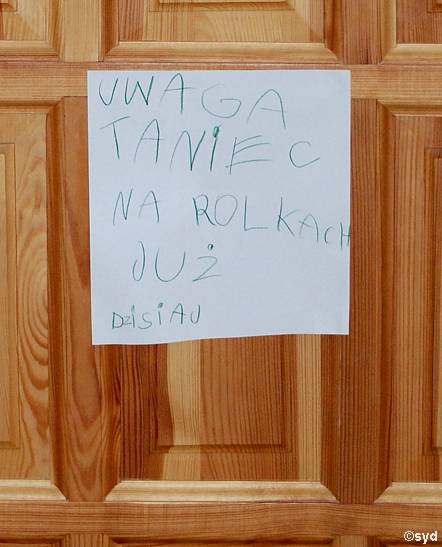 UWAGA
TANiEC
NA ROLKACH
JUŻ
DZiSiAJ
©syd